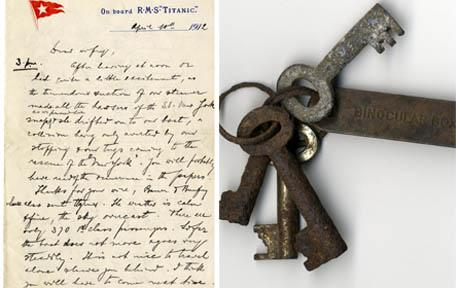 On board R.M.S "TITANIC."
April 10th 1912
Dear wifey,
3 pm. After leaving at noon or
had quite a little excitement, as
the tremendous suction of our steamer
made all the hawsers of the SS. New York
snap & she drifted on to our boat, a
collision being only averted by our
stopping & our tugs coming to the
rescue of the "New York". You will probably
have read the occurrence in the papers.
Thanks for your wire,
class sent theirs. The weather is calm
& fine, the sky overcast. There are
only 370 1st class passengers. So far
the boat does not move & goes very
steadily. It is not nice to travel
alone & leave you behind. I think
you will have to come next time
BINOCULAR BOX